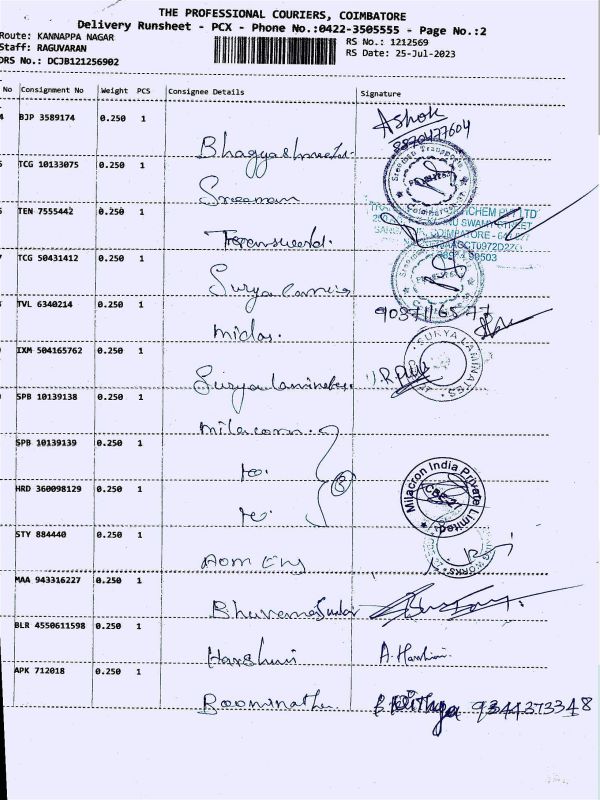 THE PROFESSIONAL COURIERS, COIMBATORE
Delivery Runsheet - PCX - Phone No.:0422-3505555 - Page No.:2
Route: KANNAPPA NAGAR
RS No.: 1212569
Staff: RAGUVARAN
RS Date: 25-Jul-2023
DRS No.: DCJB121256902
No Consignment No Weight PCS Consignee Details Signature
4 BJP 3589174 0.250 1
Ashok
8870427604
Sreeman Transports
TCG 10133075 0.250 1
Sreeman
TEN 7555442 0.250 1
CHEM PVT LTD
SWAMY STREET
COIMBATORE - 641 027
TCG 50431412 0.250 1
Surya
TVL 6340214 0.250 1
Midas.
9037116577
IXM 504165762 0.250 1
Surya laminates
SURYA LAMINATES
SPB 10139138 0.250 1
Milacron.
SPB 10139139 0.250 1
3
HRD 360098129 0.250 1
Milacron India Private Limited
CBE-27
STY 884440 0.250 1
Aom Eng
WORKS
MAA 943316227 0.250 1
BLR 4550611598 0.250 1
Harshini A. Harshini.
APK 712018 0.250 1
9344373348